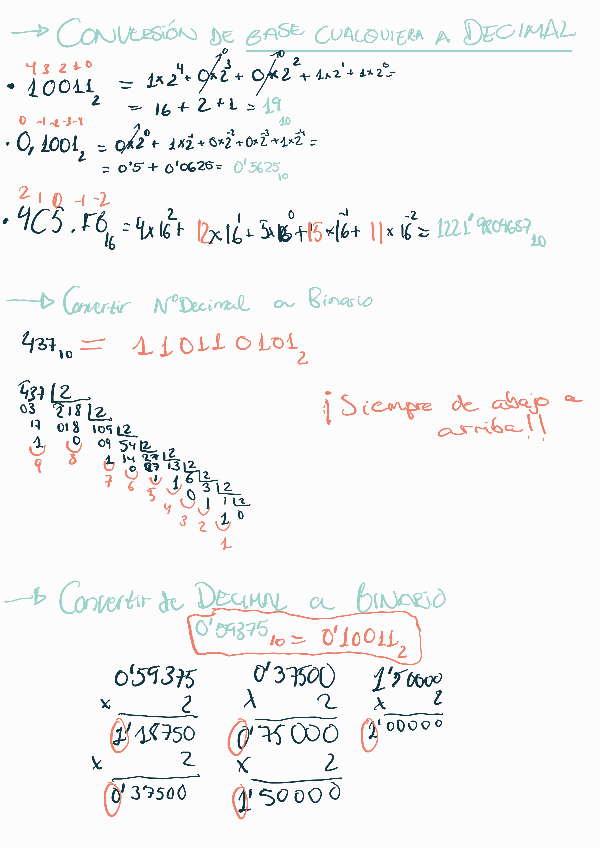 → CONVERSIÓN DE BASE CUALQUIERA A DECIMAL
4 3 2 1 0
• 10011₂ = 1x2⁴ + 0x2³ + 0x2² + 1x2¹ + 1x2⁰ =
= 16 + 2 + 1 = 19₁₀
0 -1 -2 -3 -4
• 0,1001₂ = 0x2⁰ + 1x2⁻¹ + 0x2⁻² + 0x2⁻³ + 1x2⁻⁴ =
= 0'5 + 0'0625 = 0'5625₁₀
2 1 0 -1 -2
• 4C5.FB₁₆ = 4x16² + 12x16¹ + 5x16⁰ + 15x16⁻¹ + 11x16⁻² = 1221'9804687₁₀
→ Convertir Nº Decimal a Binario
437₁₀ = 110110101₂
437 |2
03 218 |2
17 018 109 |2
1 0 09 54 |2
1 14 27 |2
0 07 13 |2
1 1 6 |2
0 3 |2
1 1 |2
1 0
9 8 7 6 5 4 3 2 1
¡Siempre de abajo a
arriba!!
→ Convertir de DECIMAL a BINARIO
0'59375₁₀ = 0'10011₂
0'59375 0'37500 1'50000
x 2 x 2 x 2
1'18750 0'75000 1'00000
x 2 x 2
0'37500 1'50000